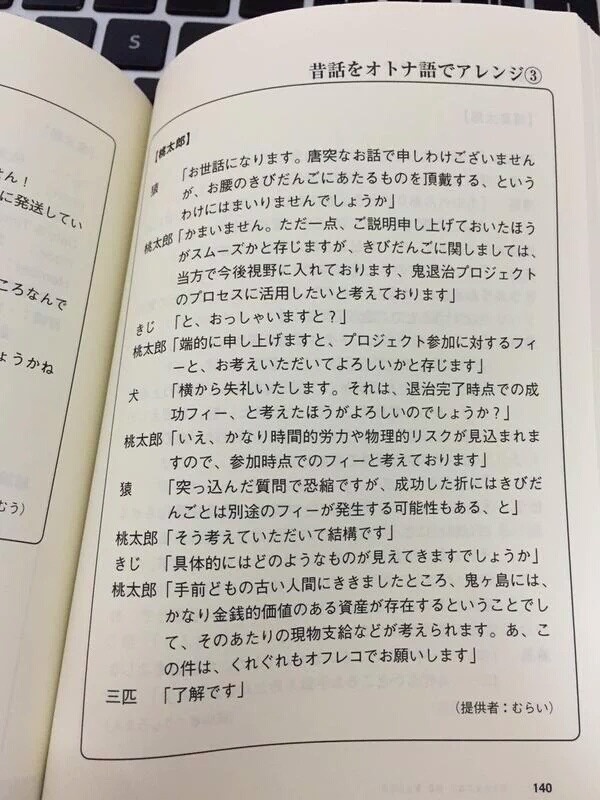 昔話をオトナ語でアレンジ③
【桃太郎】
猿　「お世話になります。唐突なお話で申しわけございません
が、お腰のきびだんごにあたるものを頂戴する、という
わけにはまいりませんでしょうか」
桃太郎「かまいません。ただ一点、ご説明申し上げておいたほう
がスムーズかと存じますが、きびだんごに関しましては、
当方で今後視野に入れております、鬼退治プロジェクト
のプロセスに活用したいと考えております」
きじ　「と、おっしゃいますと？」
桃太郎「端的に申し上げますと、プロジェクト参加に対するフィ
ーと、お考えいただいてよろしいかと存じます」
犬　「横から失礼いたします。それは、退治完了時点での成
功フィー、と考えたほうがよろしいのでしょうか？」
桃太郎「いえ、かなり時間的労力や物理的リスクが見込まれま
すので、参加時点でのフィーと考えております」
猿　「突っ込んだ質問で恐縮ですが、成功した折にはきびだ
んごとは別途のフィーが発生する可能性もある、と」
桃太郎「そう考えていただいて結構です」
きじ　「具体的にはどのようなものが見えてきますでしょうか」
桃太郎「手前どもの古い人間にききましたところ、鬼ヶ島には、
かなり金銭的価値のある資産が存在するということでし
て、そのあたりの現物支給などが考えられます。あ、こ
の件は、くれぐれもオフレコでお願いします」
三匹　「了解です」
（提供者：むらい）
140
せん！
に発送してい
ころなんで
ょうかね
むう）
S